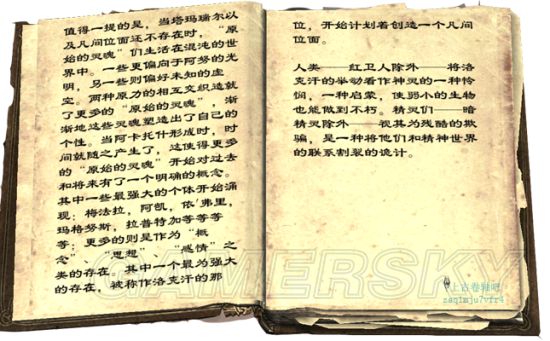 值得一提的是，当塔玛瑞尔以
及凡间位面还不存在时，“原
始的灵魂”们生活在混沌的世
界中。一些更偏向于阿努的光
明，另一些则偏好未知的虚
空。两种原力的相互交织造就
了更多的“原始的灵魂”，渐
渐地这些灵魂塑造出了自己的
个性。当阿卡托什形成时，时
间就随之产生了，这使得更多
的“原始的灵魂”开始对过去
和将来有了一个明确的概念。
其中一些最强大的个体开始涌
现：梅法拉，阿凯，依'弗里，
玛格努斯，拉普特加等等等
等；更多的则是作为“概
念”、“思想”、“感情”之
类的存在。其中一个最为强大
的存在，被称作洛克汗的那
位，开始计划着创造一个凡间
位面。
人类——红卫人除外——将洛
克汗的举动看作神灵的一种怜
悯，一种启蒙，使弱小的生物
也能做到不朽。精灵们——暗
精灵除外——视其为残酷的欺
骗，是一种将他们和精神世界
的联系割裂的诡计。
GAMERSKY
上古卷轴吧
zaq1mju7vfr4